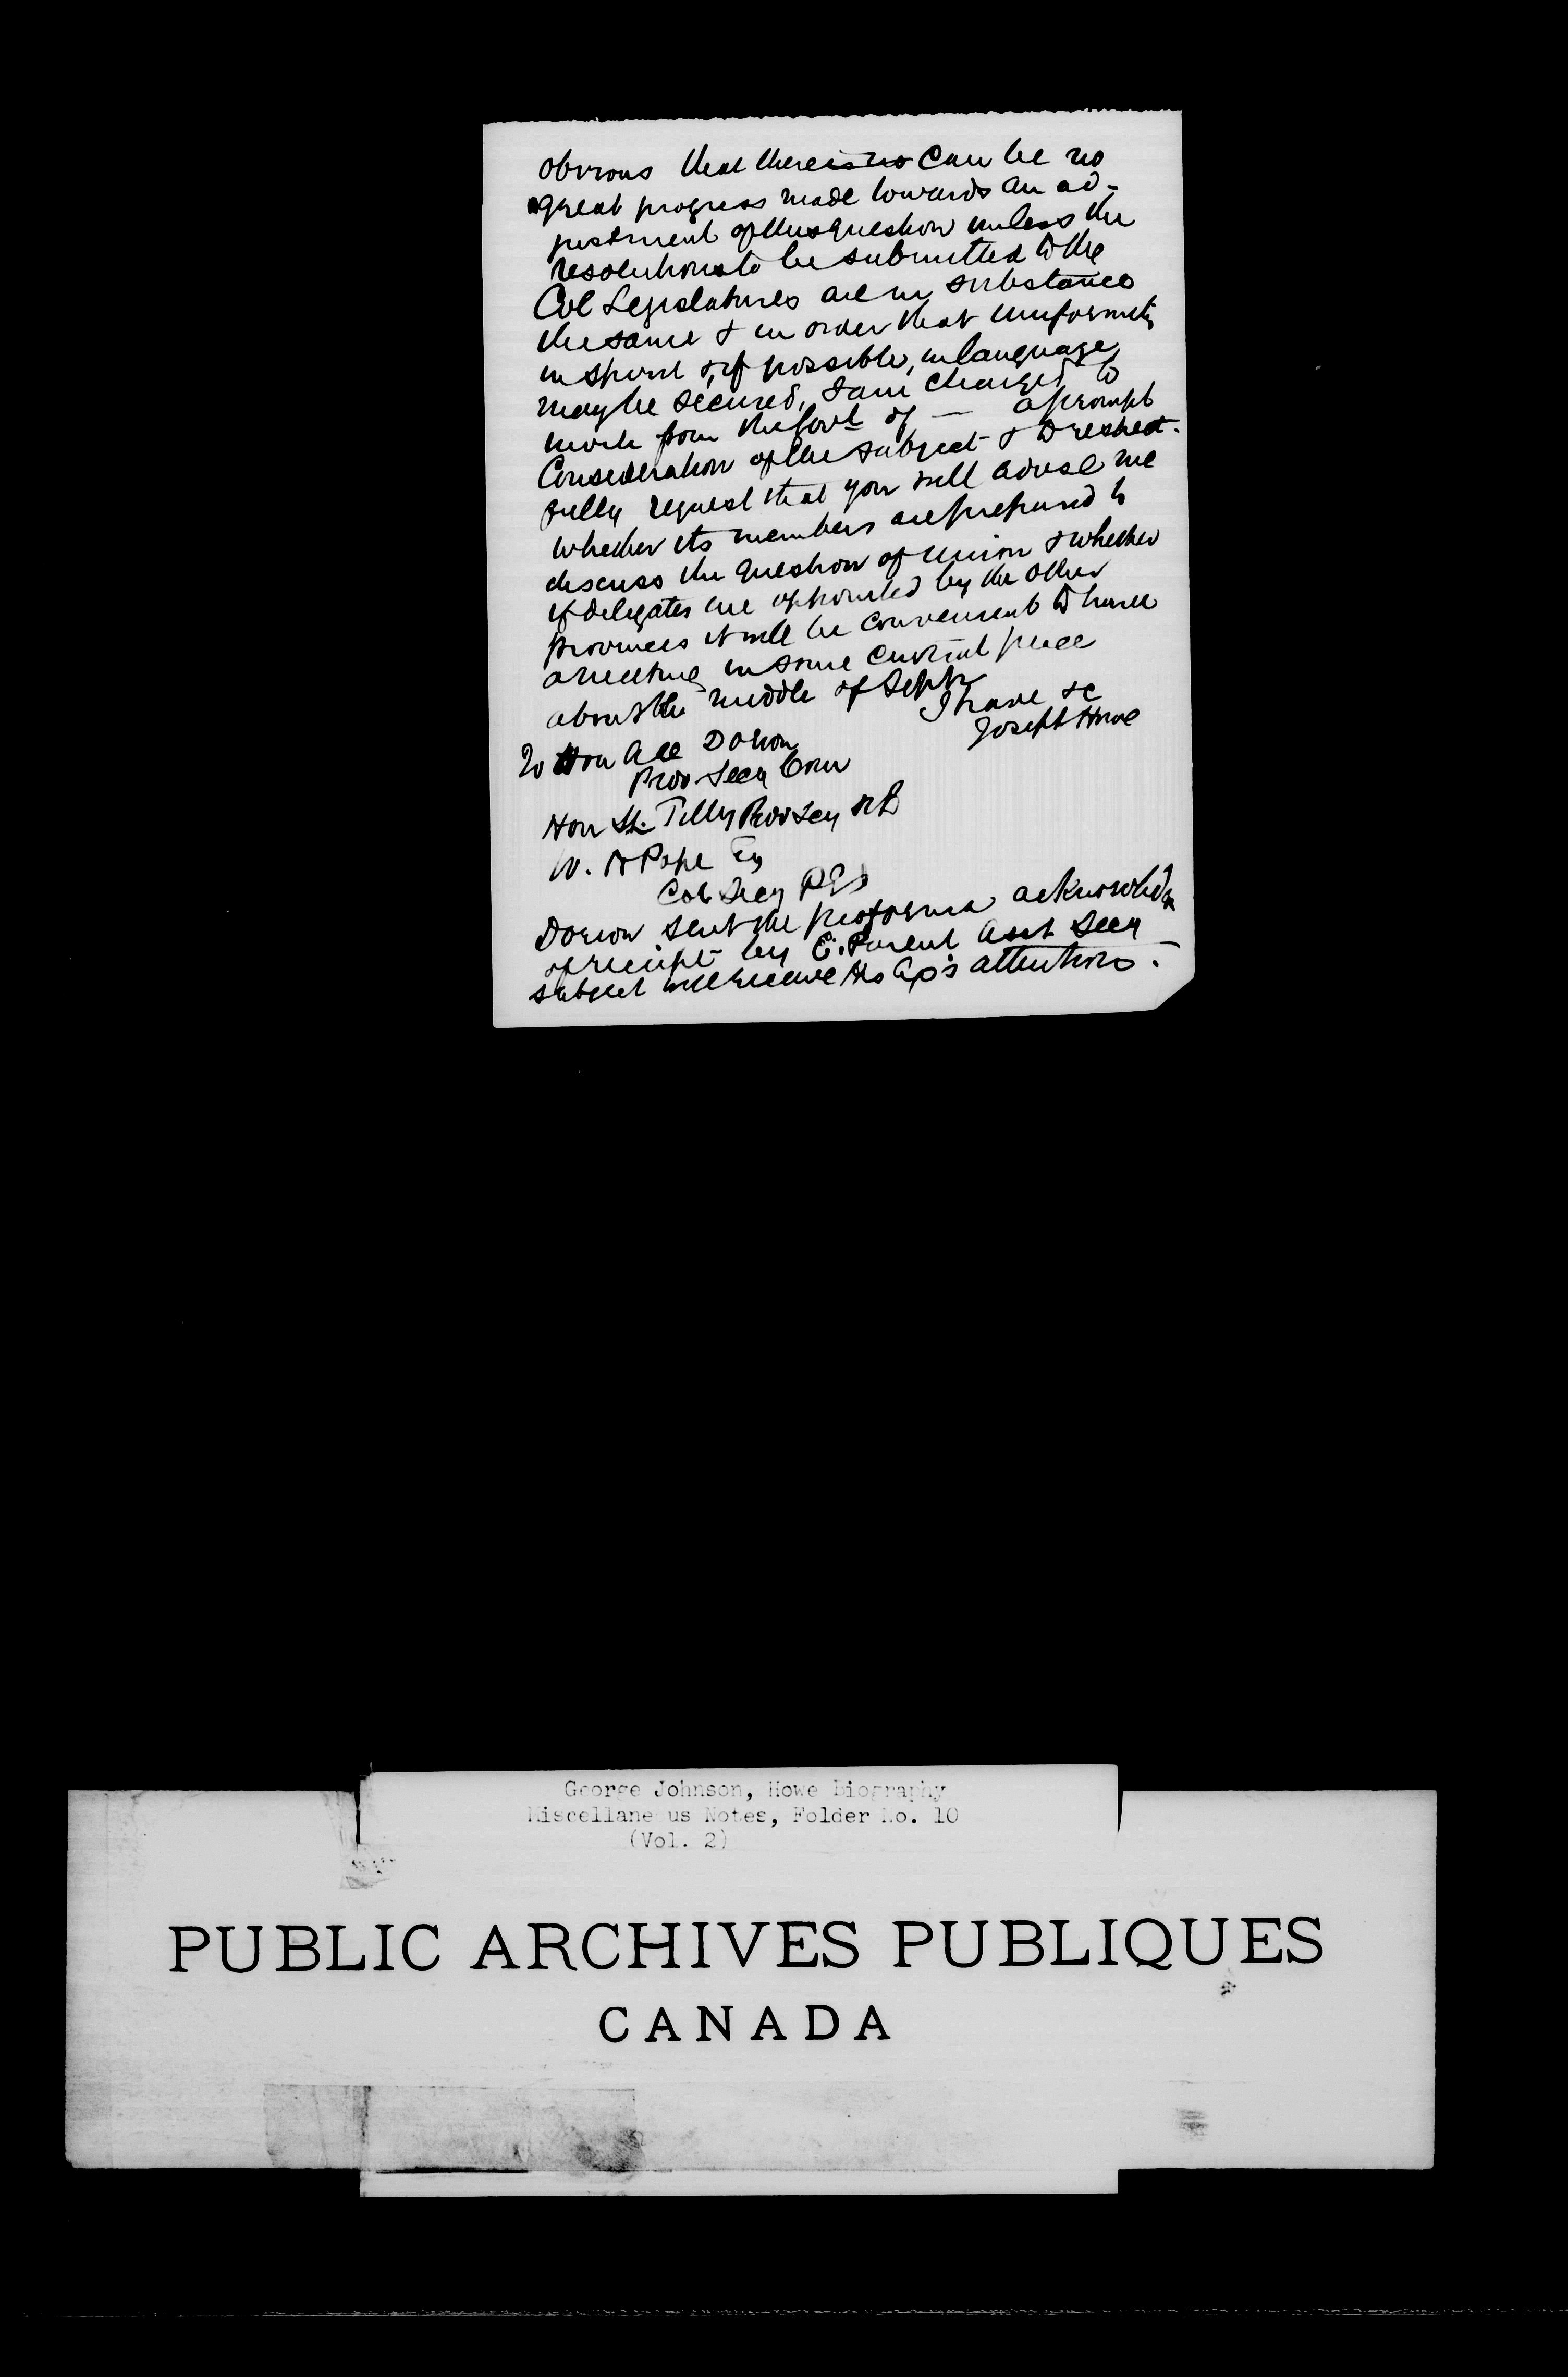 obvious that there is no can be no
great progress made towards an ad-
justment of this question unless the
resolutions to be submitted to the
Col Legislatures are in substance
the same & in order that uniformity
in spirit &, if possible, in language
may be secured, I am charged to
invite from the Govt of — a prompt
Consideration of the subject & to respect-
fully request that you will advise me
whether its members are prepared to
discuss the question of Union & whether
if delegates are appointed by the other
provinces it will be convenient to have
a meeting in some central place
about the middle of Septr
I have &c
Joseph Howe
To Hon A A Dorion
Prov Secy Can
Hon S.L. Tilley Prov Secy NB
W. H Pope Esq
Col Secy PEI
Dorion sent the proforma acknowledgm
of receipt by E. Parent Asst Secy
subject will receive His Ex's attention.
George Johnson, Howe Biography
Miscellaneous Notes, Folder No. 10
(Vol. 2)
PUBLIC ARCHIVES PUBLIQUES
CANADA